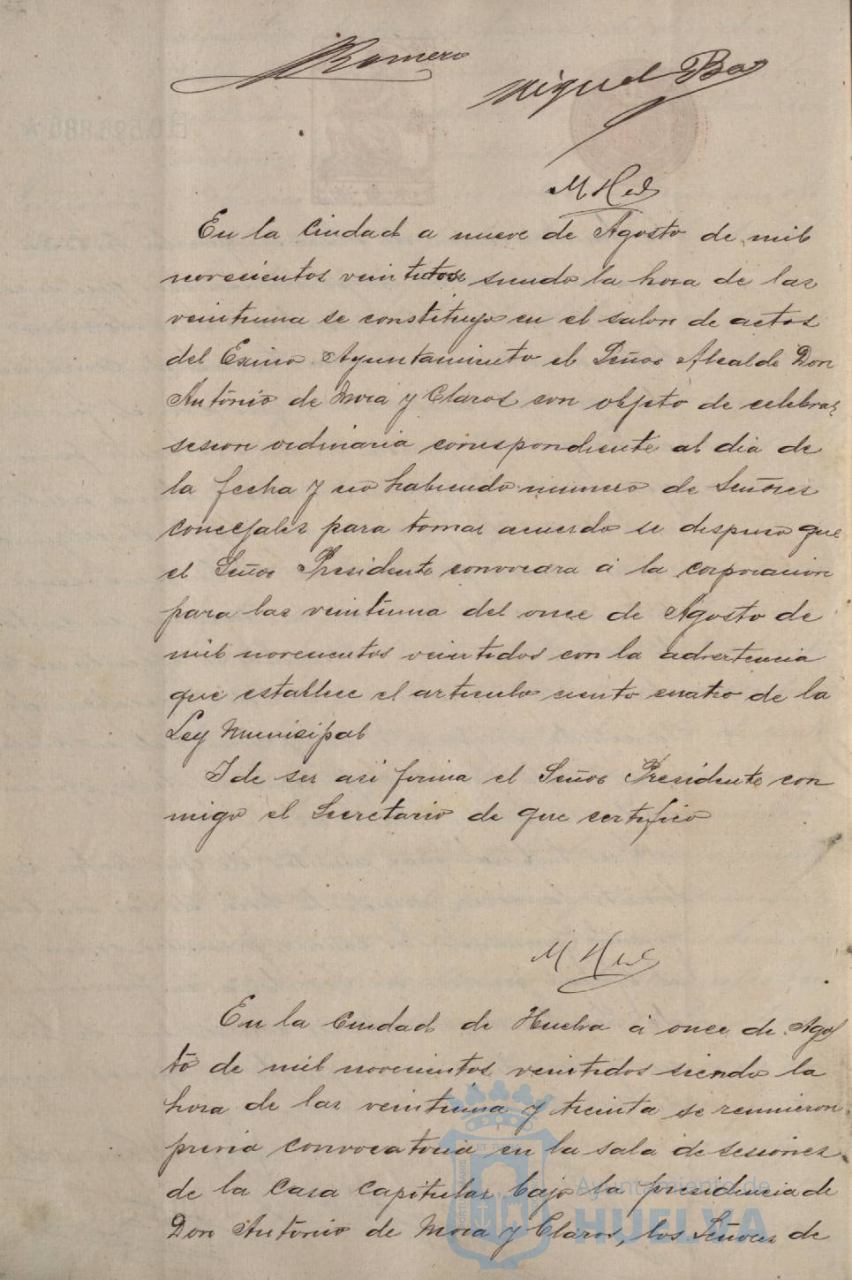 Romero
Miguel Ba
En la Ciudad a nueve de Agosto de mil
novecientos veintidos siendo la hora de las
veintiuna se constituyo en el salon de actos
del Excmo Ayuntamiento el Señor Alcalde Don
Antonio de Mora y Claros con objeto de celebrar
sesion ordinaria correspondiente al dia de
la fecha y no habiendo numero de Señores
concejales para tomar acuerdo se dispuso que
el Señor Presidente convocara á la corporacion
para las veintiuna del once de Agosto de
mil novecientos veintidos con la advertencia
que establece el articulo ciento cuatro de la
Ley Municipal
I de ser asi firma el Señor Presidente con
migo el Secretario de que certifico
En la Ciudad de Huelva á once de Agos
to de mil novecientos veintidos siendo la
hora de las veintiuna y treinta se reunieron
previa convocatoria en la sala de sesiones
de la Casa Capitular bajo la presidencia de
Don Antonio de Mora y Claros, los Señores de
Ayuntamiento de
HUELVA